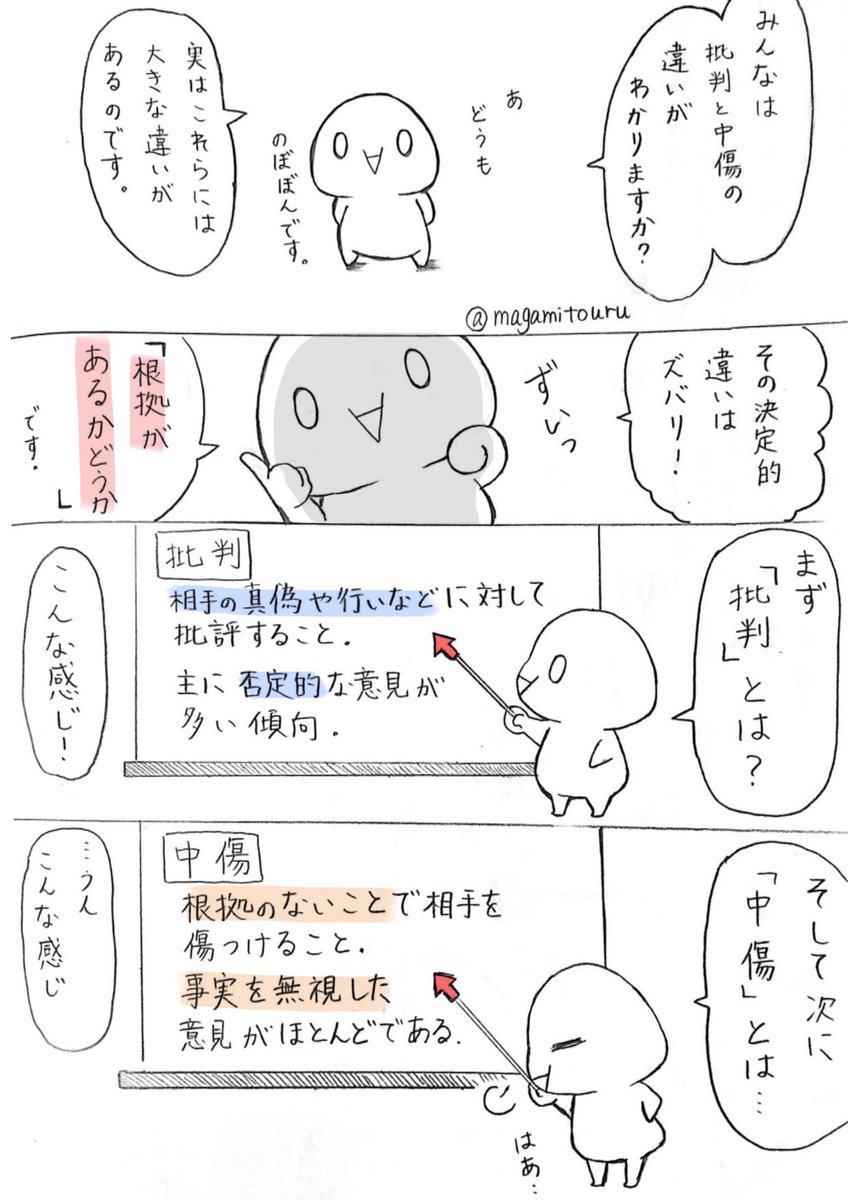 みんなは
批判と中傷の
違いが
わかりますか?
あ
どうも
のぼぼんです。
実はこれらには
大きな違いが
あるのです。
@magamitouru
その決定的
違いは
ズバリ!
ずいっ
「根拠が
あるかどうか」
です.
まず
「批判」とは?
批判
相手の真偽や行いなどに対して
批評すること.
主に否定的な意見が
多い傾向.
こんな感じ!
そして次に
「中傷」とは…
中傷
根拠のないことで相手を
傷つけること.
事実を無視した
意見がほとんどである.
はあ…
…うん
こんな感じ